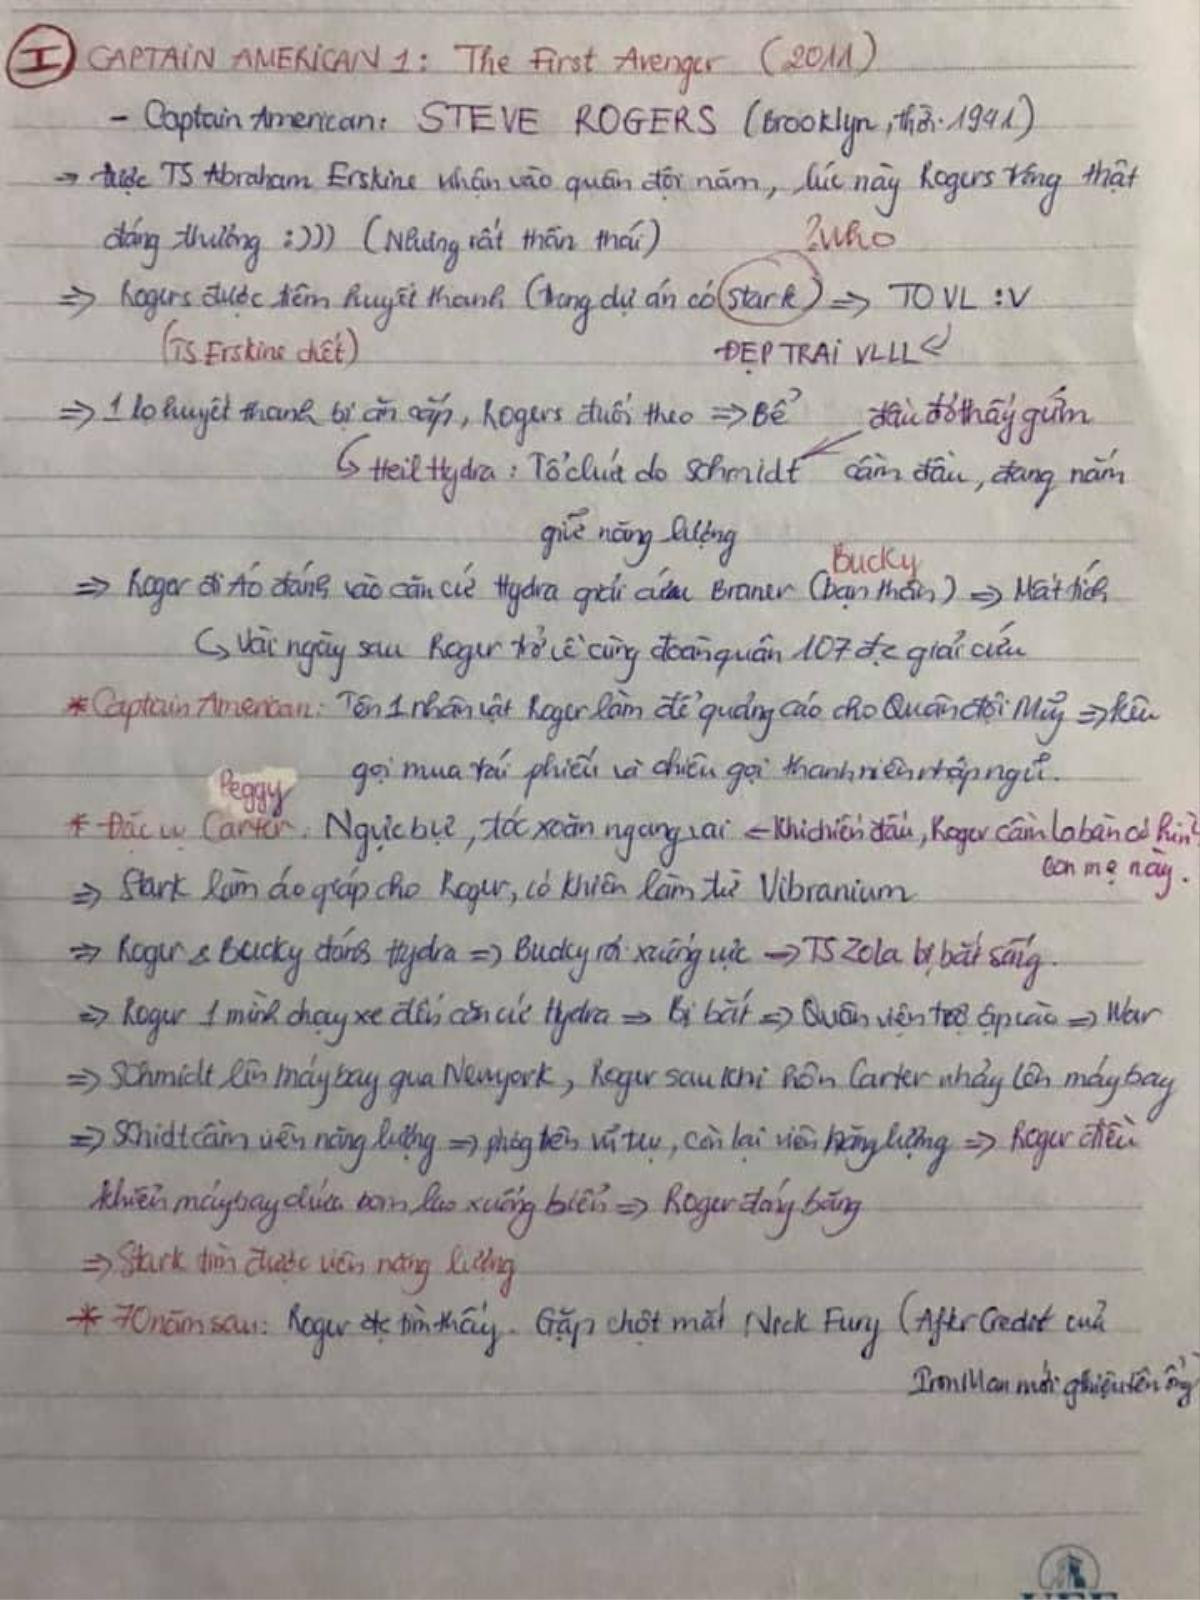 I CAPTAIN AMERICAN 1: The First Avenger (2011)
- Captain American: STEVE ROGERS (Brooklyn, 1941)
→ được TS Abraham Erskine nhận vào quân đội năm, lúc này Rogers trông thật
đáng thương :))) (Nhưng rất thần thái)
? Who
⇒ Rogers được tiêm huyết thanh (trong dự án có Stark) ⇒ TO VL :V
(TS Erskine chết)
ĐẸP TRAI VLLL
⇒ 1 lọ huyết thanh bị ăn cắp, Rogers đuổi theo ⇒ Bể
đầu đỏ thấy gứm
Heil Hydra: Tổ chức do Schmidt cầm đầu, đang nắm
giữ năng lượng
Bucky
⇒ Roger đi Áo đánh vào căn cứ Hydra giải cứu Braner (bạn thân) ⇒ Mất tích
Vài ngày sau Roger trở về cùng đoàn quân 107 đc giải cứu
* Captain American: Tên 1 nhân vật Roger làm để quảng cáo cho Quân đội Mỹ ⇒ kêu
gọi mua trái phiếu và chiêu gọi thanh niên nhập ngũ.
Peggy
* Đặc vụ Carter: Ngực bự, tóc xoăn ngang vai ← Khi chiến đấu, Roger cầm la bàn có hình
con mẹ này.
⇒ Stark làm áo giáp cho Roger, có khiên làm từ Vibranium
⇒ Roger & Bucky đánh Hydra ⇒ Bucky rơi xuống vực → TS Zola bị bắt sống.
⇒ Roger 1 mình chạy xe đến căn cứ Hydra ⇒ Bị bắt ⇒ Quân viện trợ ập vào ⇒ War
⇒ Schmidt lên máy bay qua Newyork, Roger sau khi hôn Carter nhảy lên máy bay
⇒ Schidt cầm viên năng lượng ⇒ phóng lên vũ trụ, còn lại viên năng lượng ⇒ Roger điều
khiển máy bay chứa bom lao xuống biển ⇒ Roger đóng băng
⇒ Stark tìm được viên năng lượng
* 70 năm sau: Roger đc tìm thấy. Gặp chột mắt Nick Fury (After Credit của
IronMan mới ghiệu tên ổng